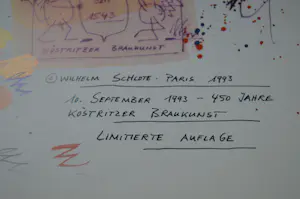 1543
KÖSTRITZER BRAUKUNST
© WILHELM SCHLOTE · PARIS 1993
10. SEPTEMBER 1993 – 450 JAHRE
KÖSTRITZER BRAUKUNST
LIMITIERTE AUFLAGE